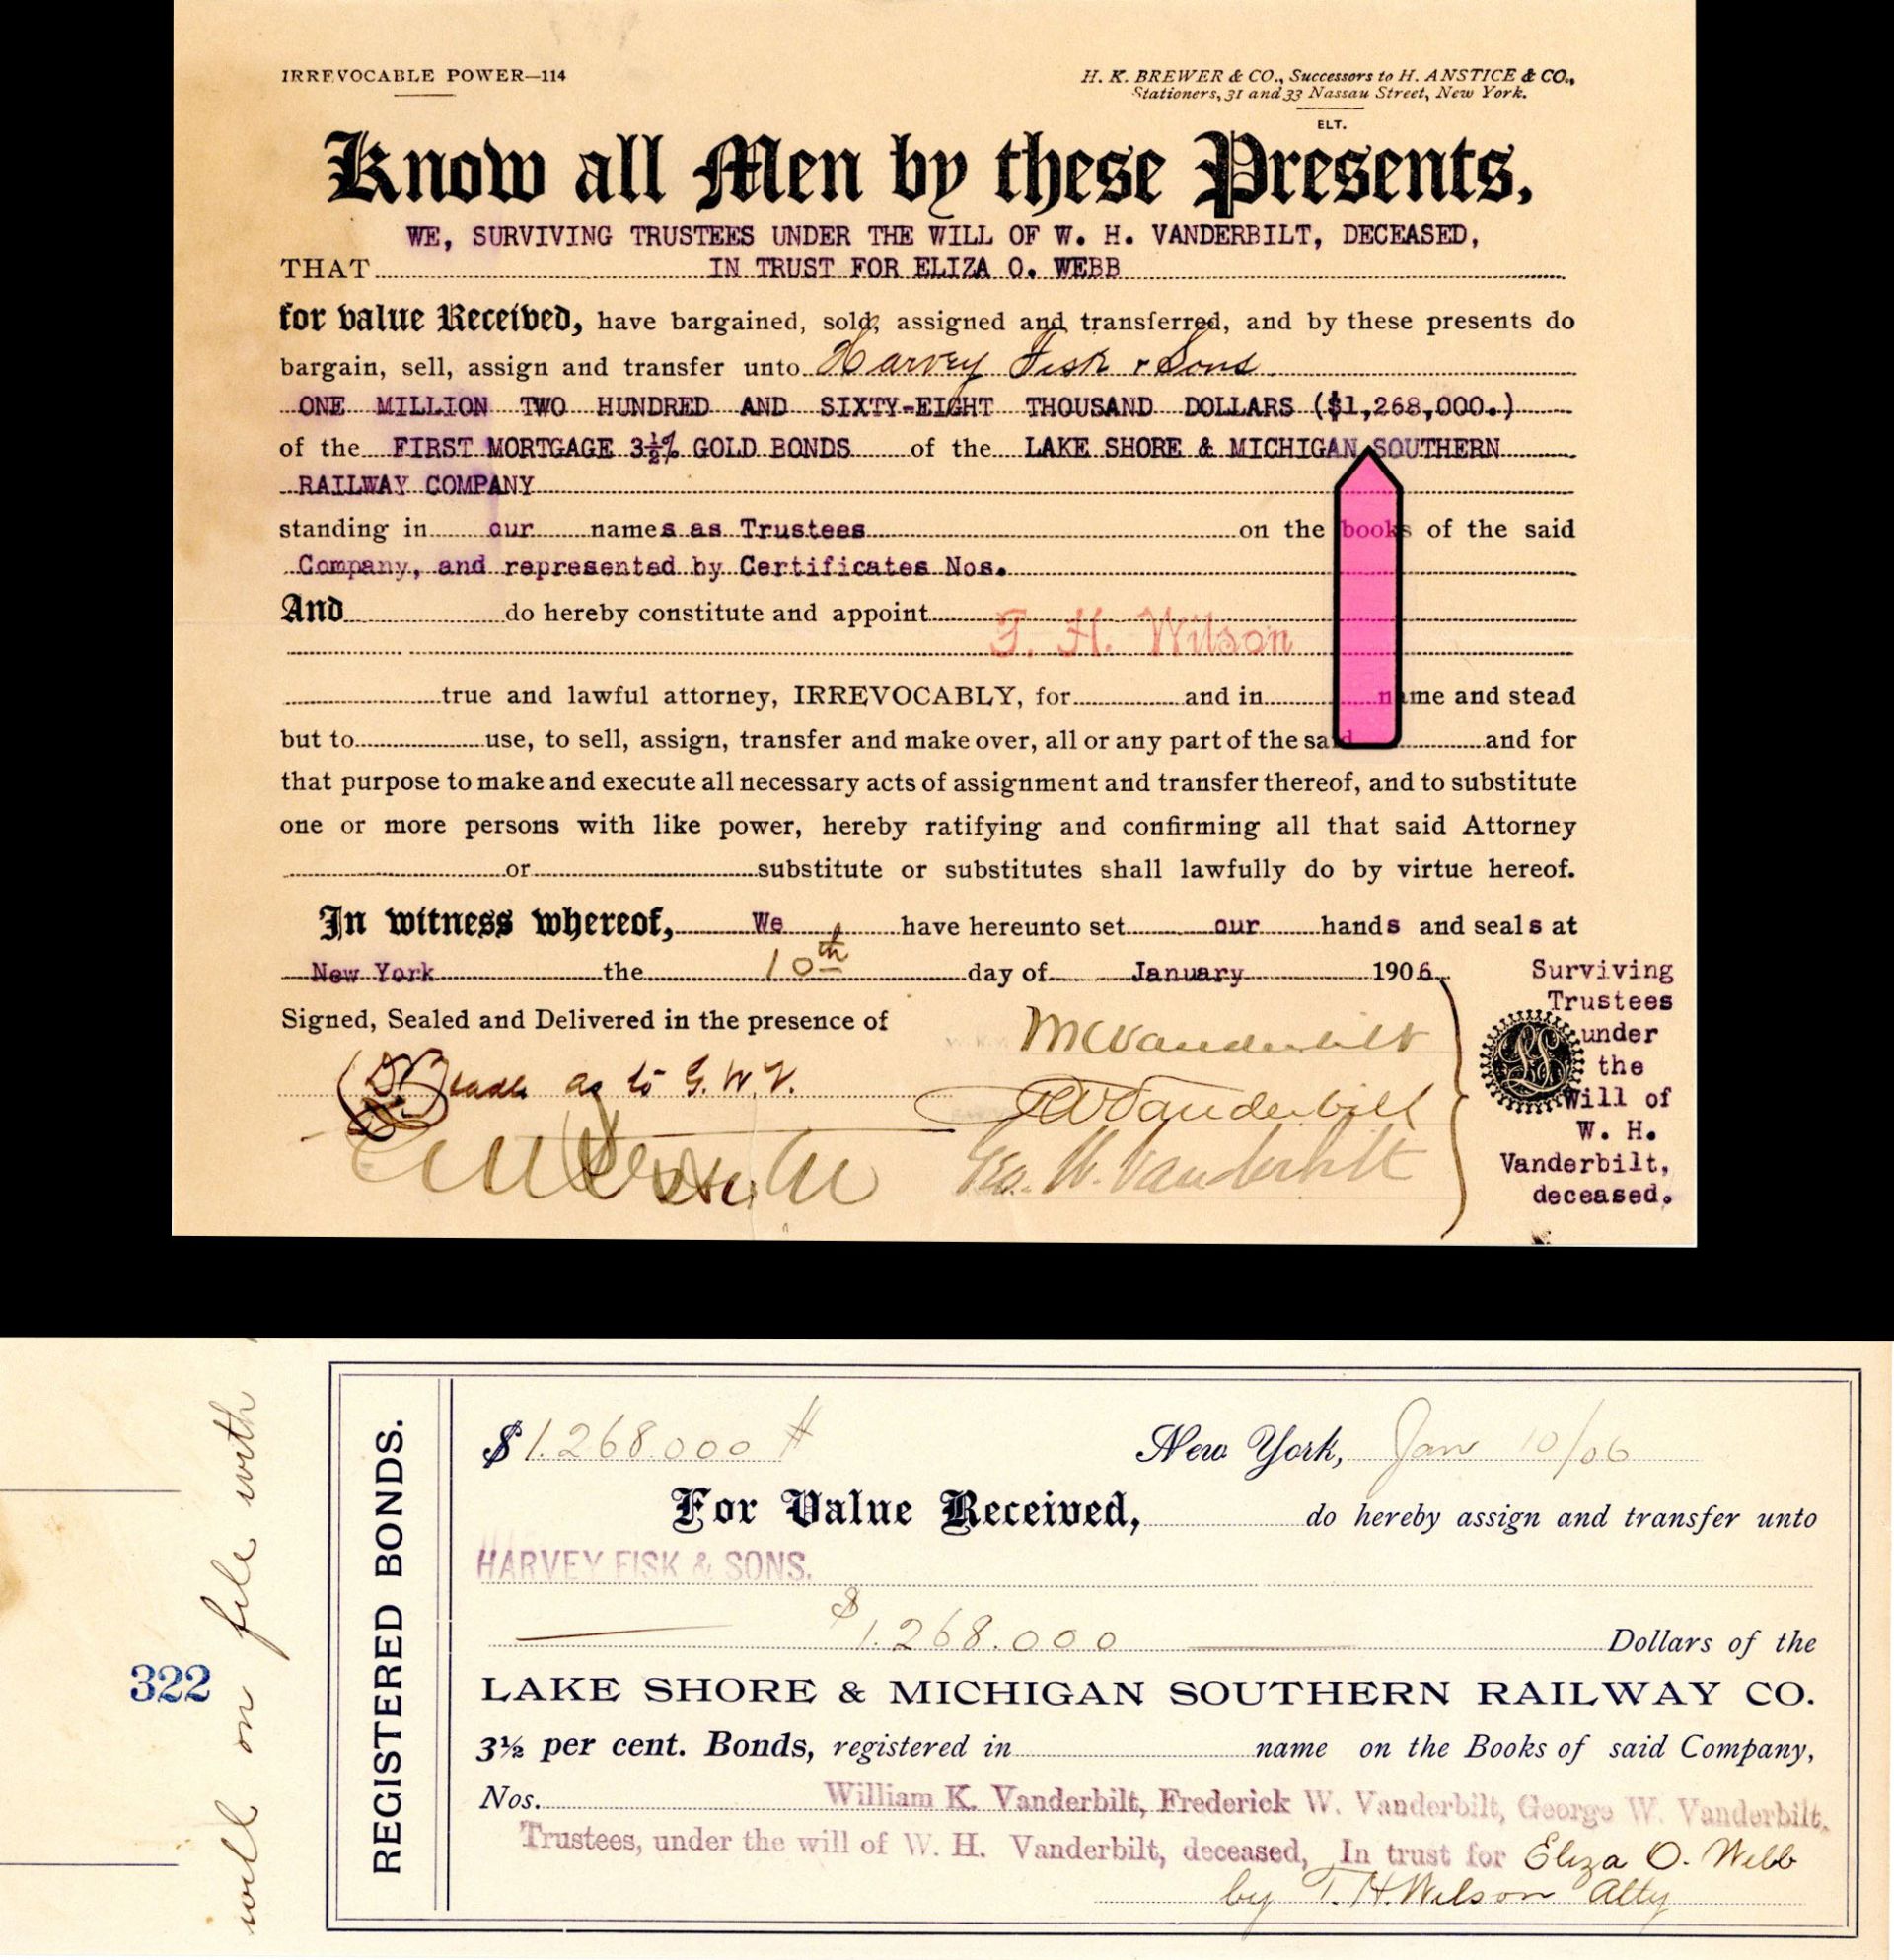 IRREVOCABLE POWER—114
H. K. BREWER & CO., Successors to H. ANSTICE & CO.,
Stationers, 31 and 33 Nassau Street, New York.
ELT.
Know all Men by these Presents,
WE, SURVIVING TRUSTEES UNDER THE WILL OF W. H. VANDERBILT, DECEASED,
THAT IN TRUST FOR ELIZA O. WEBB
for value Received, have bargained, sold, assigned and transferred, and by these presents do
bargain, sell, assign and transfer unto Harvey Fisk & Sons
ONE MILLION TWO HUNDRED AND SIXTY-EIGHT THOUSAND DOLLARS ($1,268,000.)
of the FIRST MORTGAGE 3½% GOLD BONDS of the LAKE SHORE & MICHIGAN SOUTHERN
RAILWAY COMPANY
standing in our names as Trustees on the books of the said
Company, and represented by Certificates Nos.
And do hereby constitute and appoint
T. H. Wilson
true and lawful attorney, IRREVOCABLY, for and in name and stead
but to use, to sell, assign, transfer and make over, all or any part of the said and for
that purpose to make and execute all necessary acts of assignment and transfer thereof, and to substitute
one or more persons with like power, hereby ratifying and confirming all that said Attorney
or substitute or substitutes shall lawfully do by virtue hereof.
In witness whereof, We have hereunto set our hands and seals at
New York the 10th day of January 1906
Signed, Sealed and Delivered in the presence of
as to G. W. V.
WKVanderbilt
FWVanderbilt
Geo. W. Vanderbilt
Surviving
Trustees
under
the
Will of
W. H.
Vanderbilt,
deceased.
LS
will on file with
322
REGISTERED BONDS.
$1.268.000 New York, Jan 10/06
For Value Received, do hereby assign and transfer unto
HARVEY FISK & SONS.
$1.268.000 Dollars of the
LAKE SHORE & MICHIGAN SOUTHERN RAILWAY CO.
3½ per cent. Bonds, registered in name on the Books of said Company,
Nos. William K. Vanderbilt, Frederick W. Vanderbilt, George W. Vanderbilt,
Trustees, under the will of W. H. Vanderbilt, deceased, In trust for Eliza O. Webb
by T. H. Wilson Atty